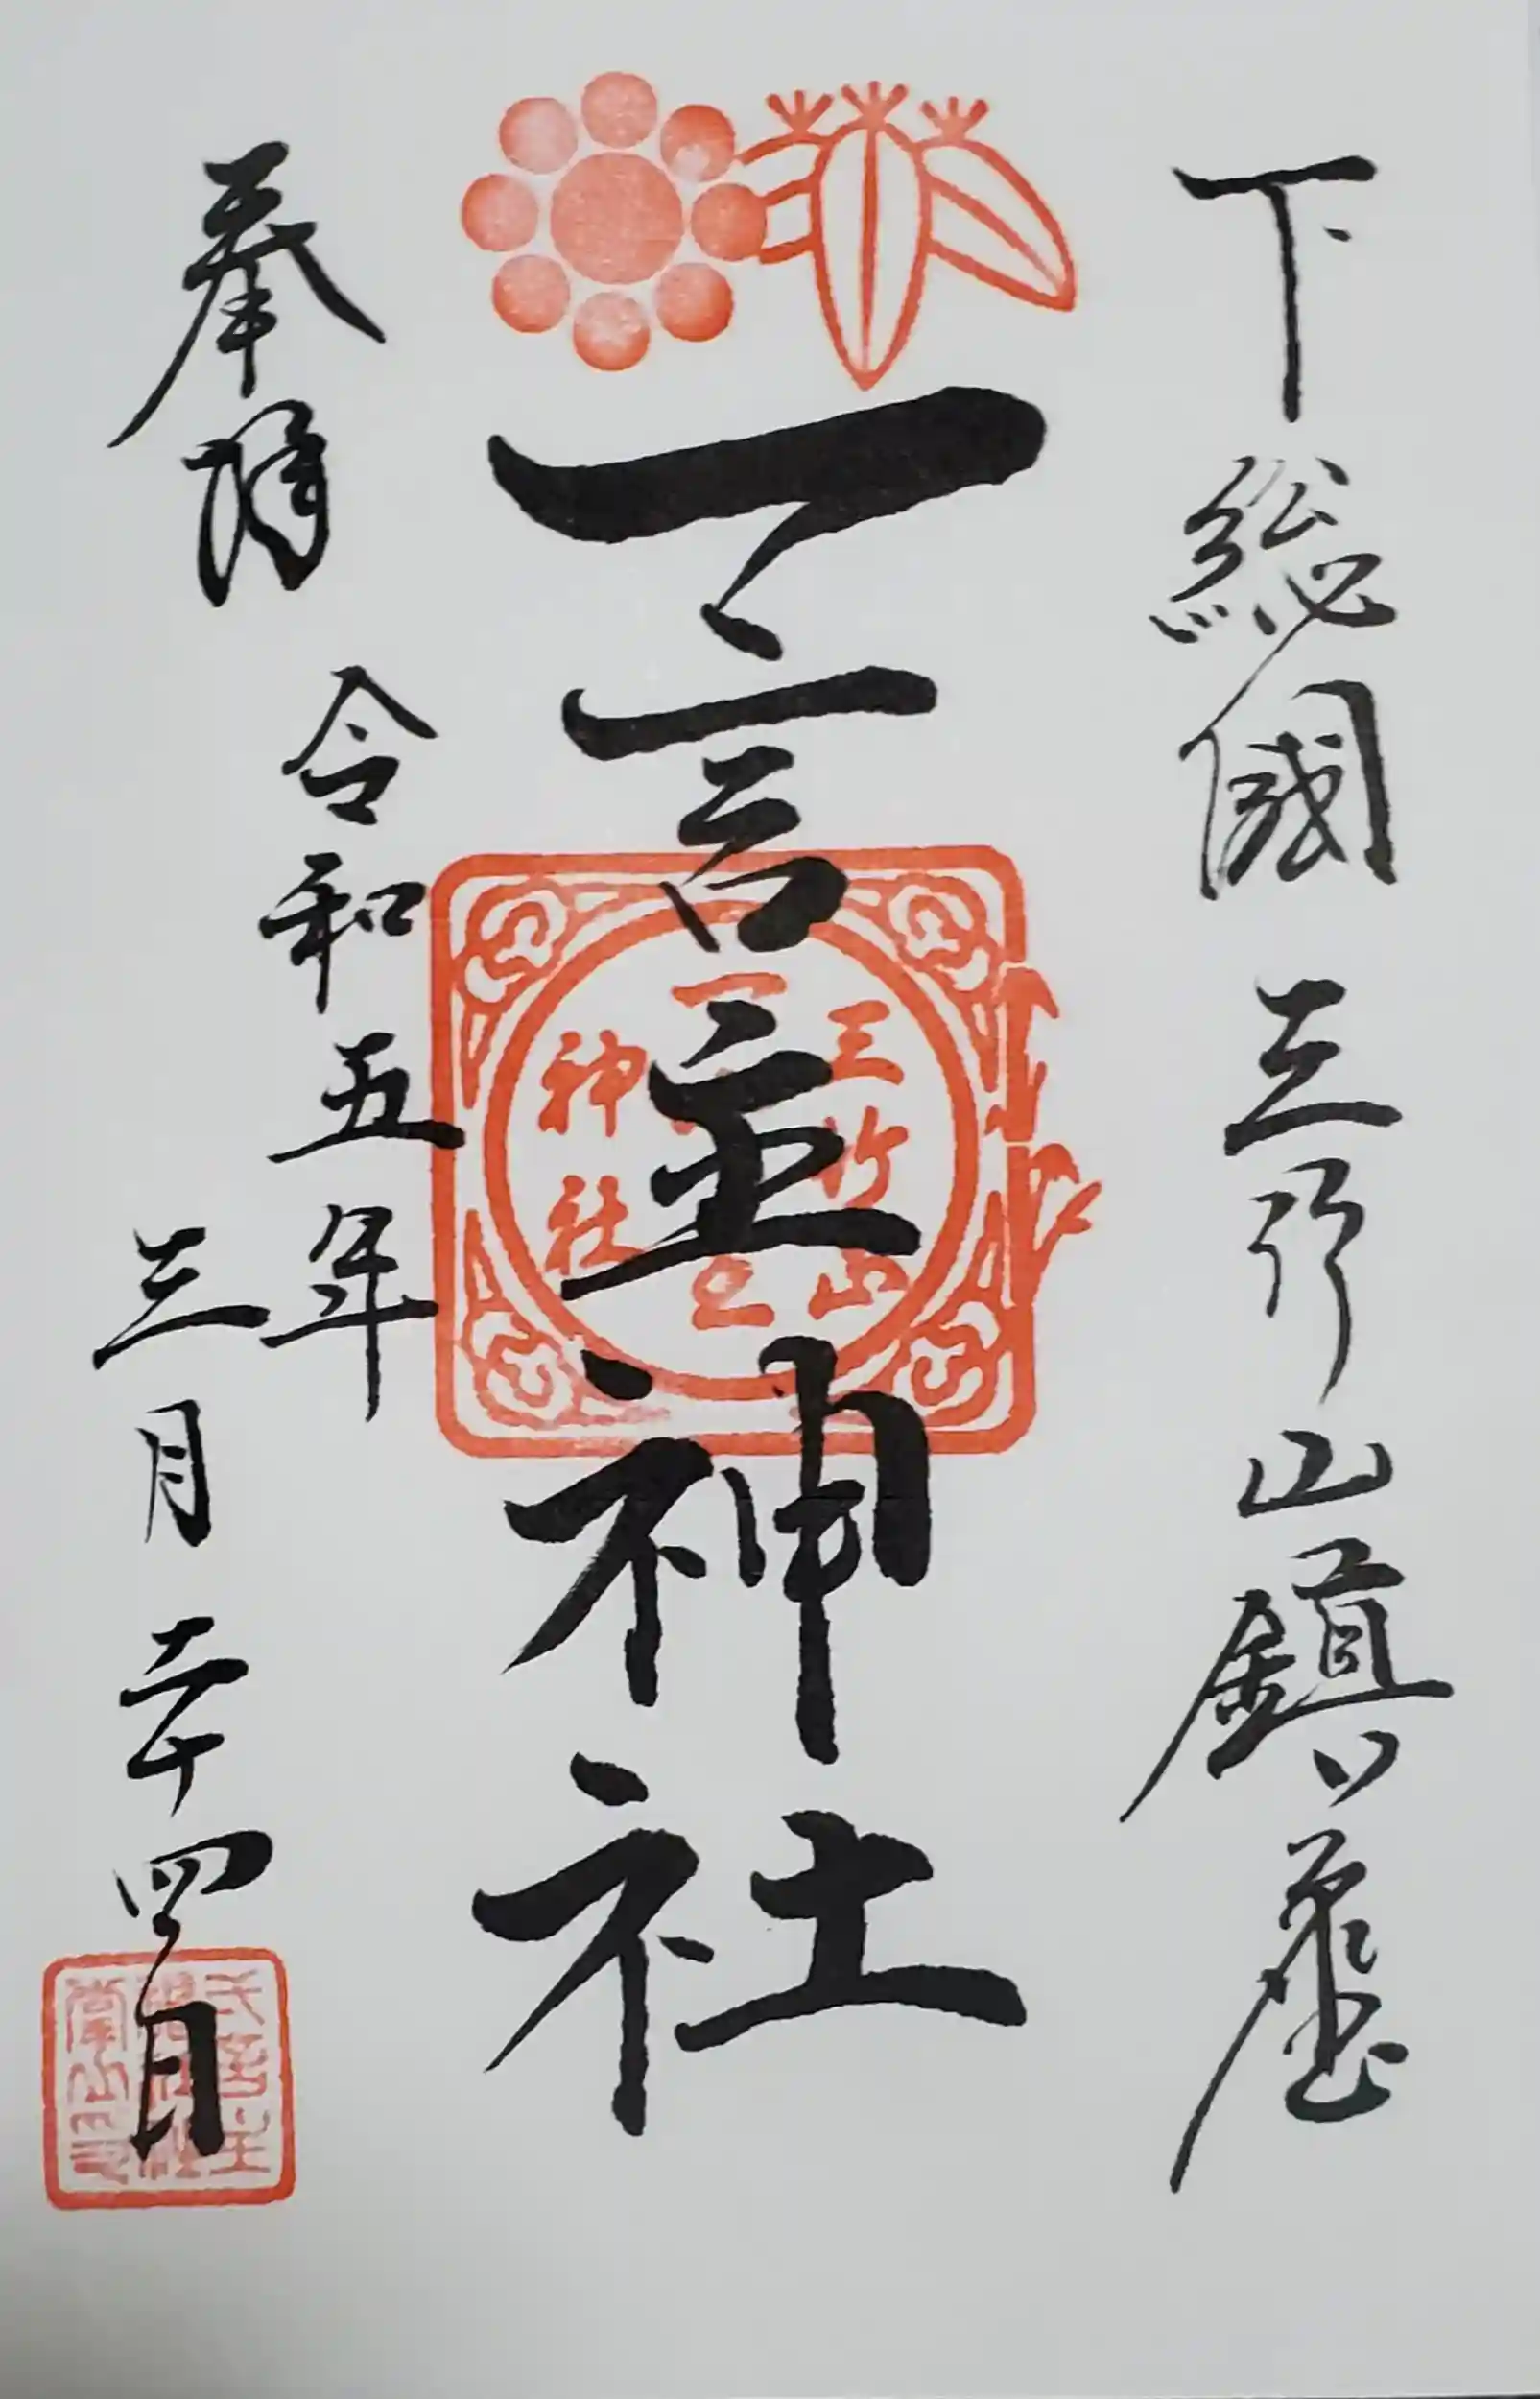 下総國 三竹山鎮座
一言主神社
三竹山
一言主
神社
奉拝
令和五年
三月二十四日